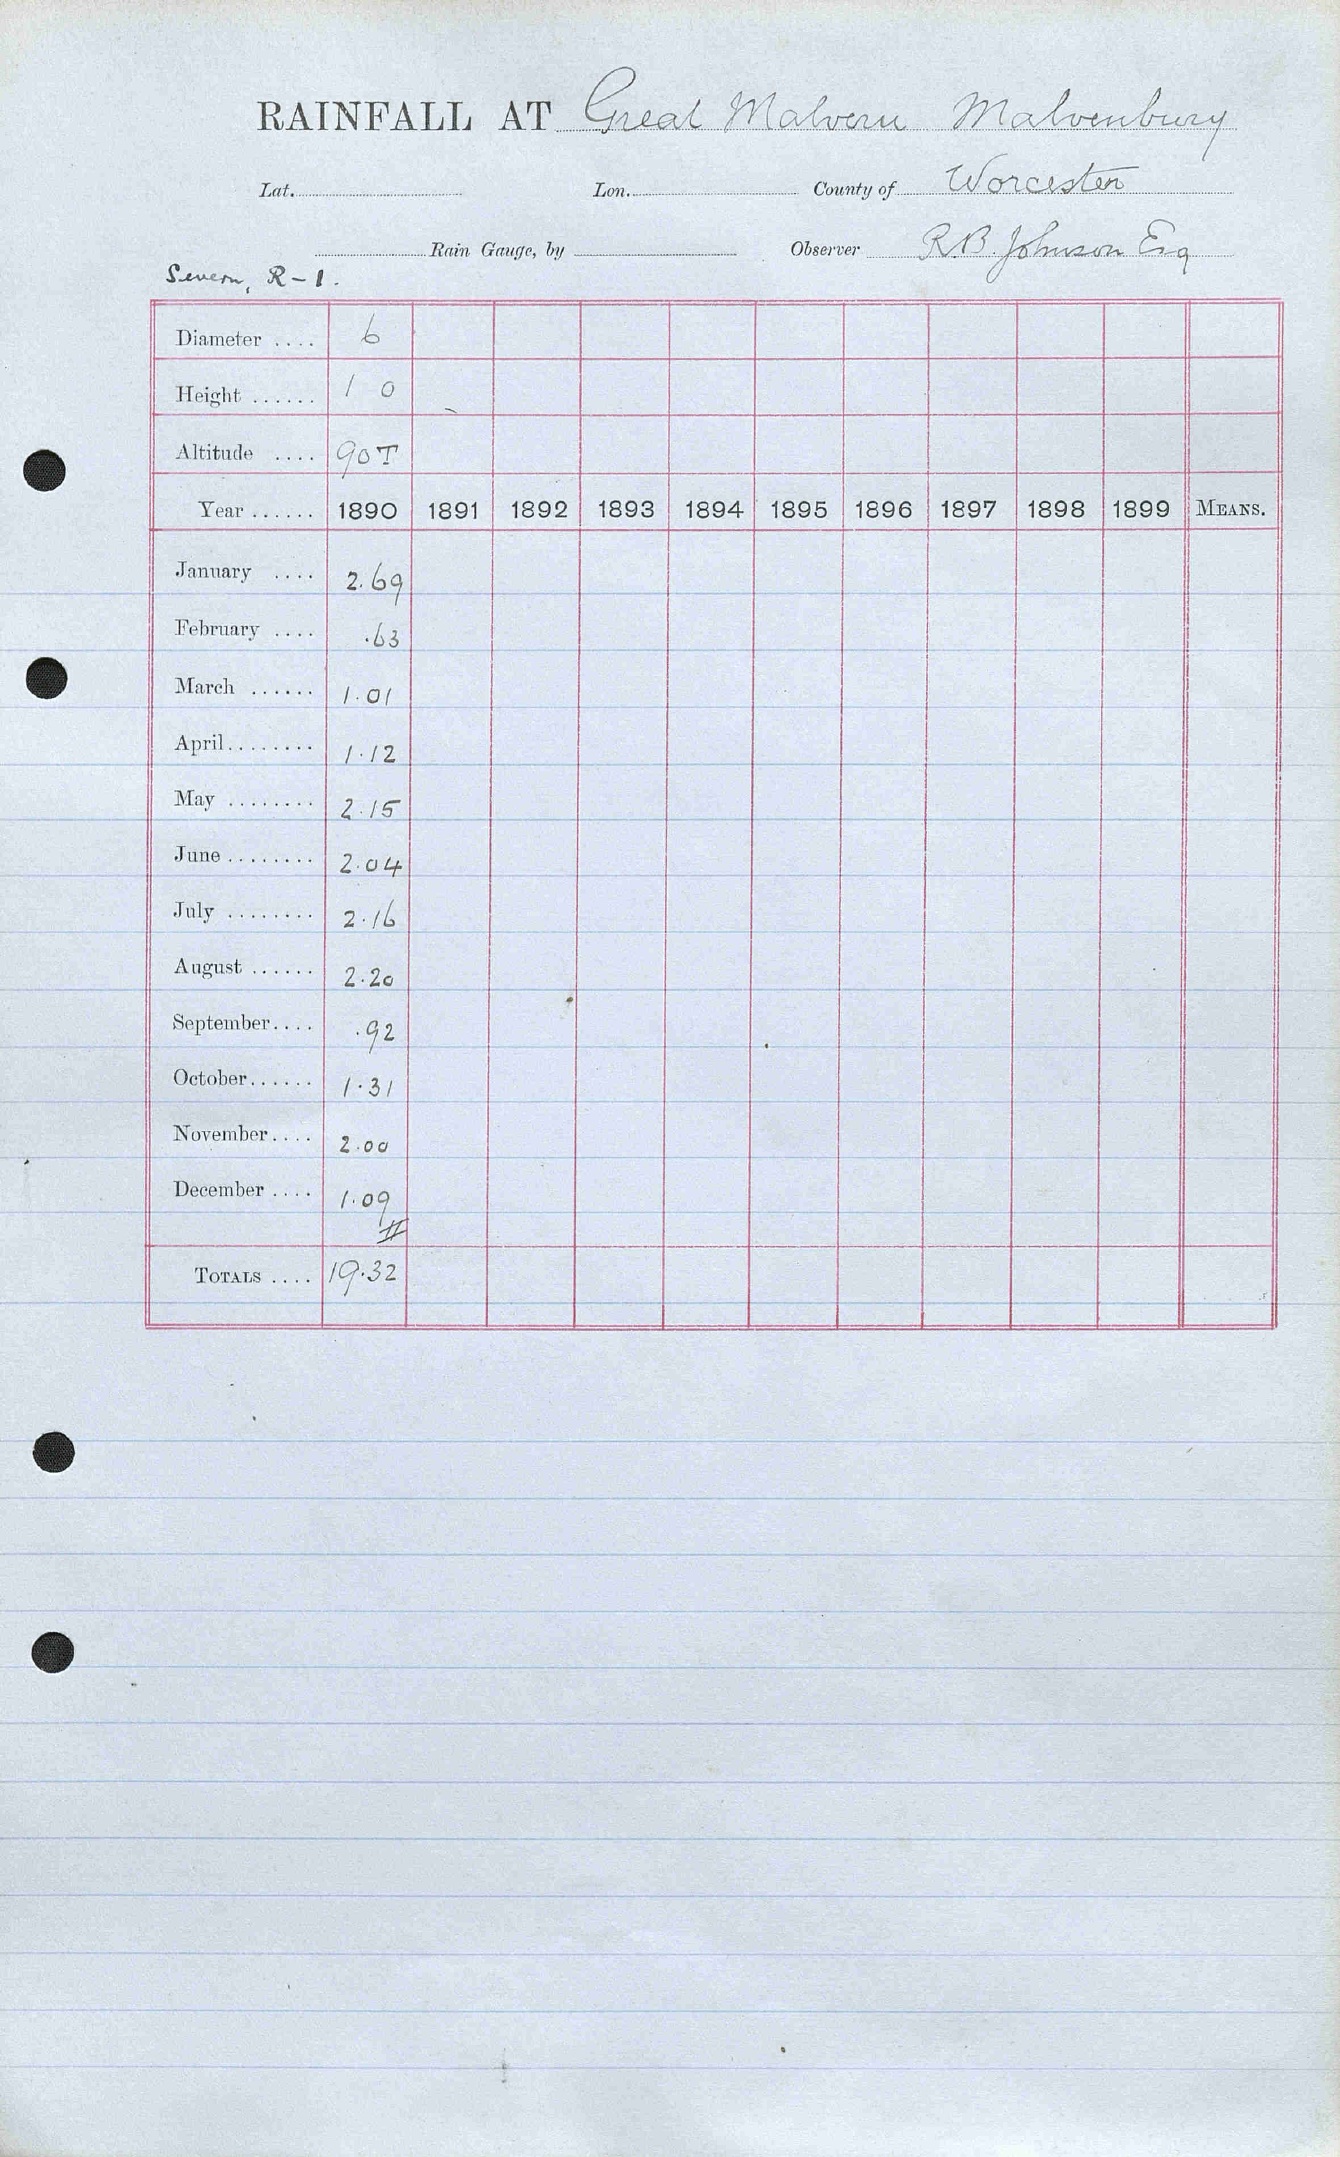 RAINFALL AT Great Malvern Malvenbury
Lat. Lon. County of Worcester
Rain Gauge, by Observer R.B. Johnson Esq
Severn, R-1.
Diameter .... 6
Height ...... 1 0
Altitude .... 90T
Year ...... 1890 1891 1892 1893 1894 1895 1896 1897 1898 1899 MEANS.
January .... 2.69
February .... .63
March ...... 1.01
April........ 1.12
May ........ 2.15
June ........ 2.04
July ........ 2.16
August ...... 2.20
September.... .92
October...... 1.31
November.... 2.00
December .... 1.09
TOTALS .... 19.32